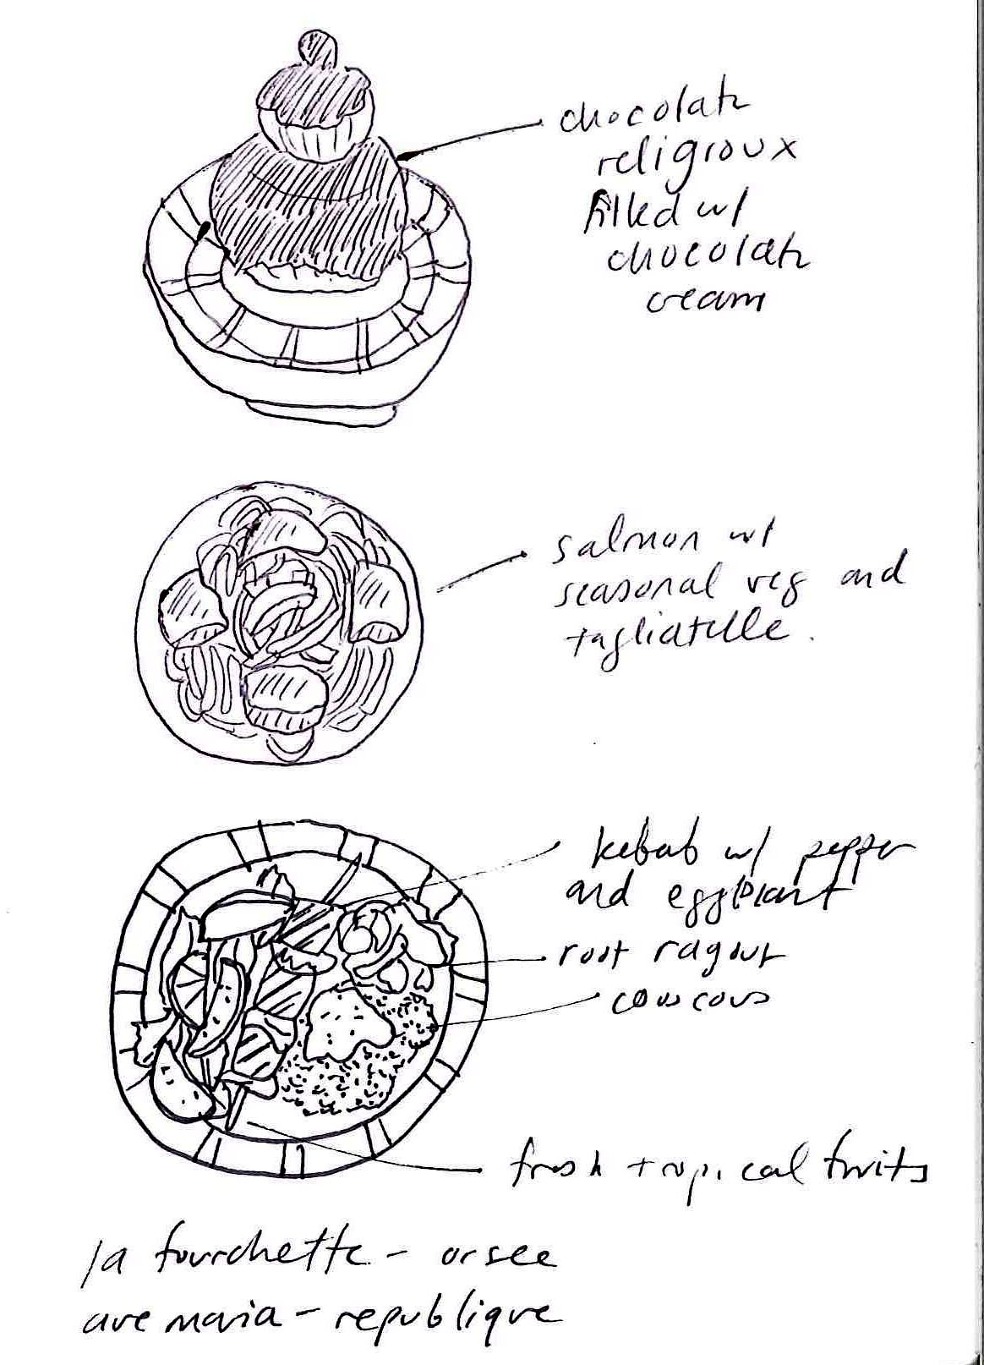 chocolate
religioux
filled w/
chocolate
cream
salmon w/
seasonal veg and
tagliatelle.
kebab w/ pepper
and eggplant
root ragout
couscous
fresh tropical fruits
la fourchette - orsee
ave maria - republique